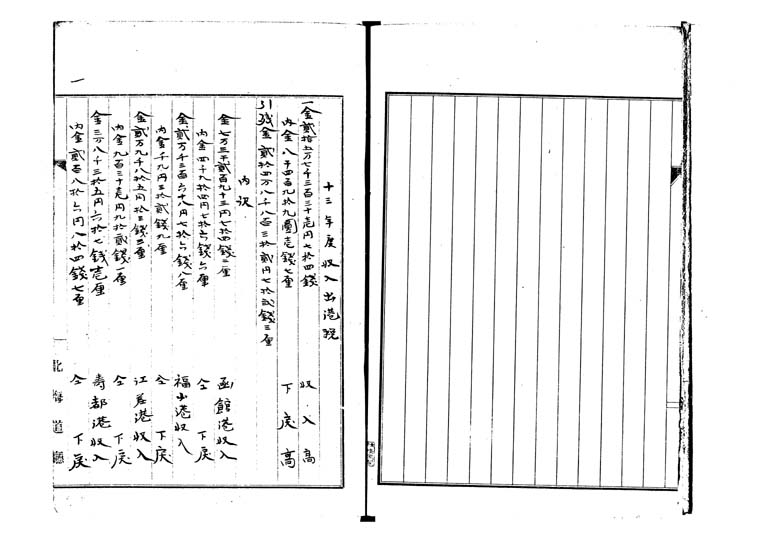 十三年度収入出港税
一金貳拾五万七千三百三十壱円七十四錢 収入高
内金八千四百九拾九圓壱錢七厘 下戻高
引残金貳拾四万八千八百三拾貳円七拾貳錢三厘
内訳
金七万三千貳百九十三円七拾四錢二厘 函館港収入
内金四千九拾四円七拾六錢六厘 仝下戻
金貳万千三百六十八円七拾六錢八厘 福山港収入
内金千九円三拾貳錢九厘 仝下戻
金貳万九千八拾五円拾三錢三厘 江差港収入
内金九百三十壱円九拾貳錢一厘 仝下戻
金三万八千三拾五円六拾七錢壱厘 寿都港収入
内金貳百八拾六円八拾四錢七厘 仝下戻
一
北海道廳